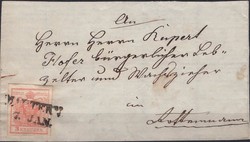 An
Herrn Herrn Rupert
Hofer bürgerlicher Leb-
zelter und Wachszieher
in